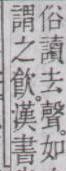 俗讀去聲。如
謂之飮。漢書